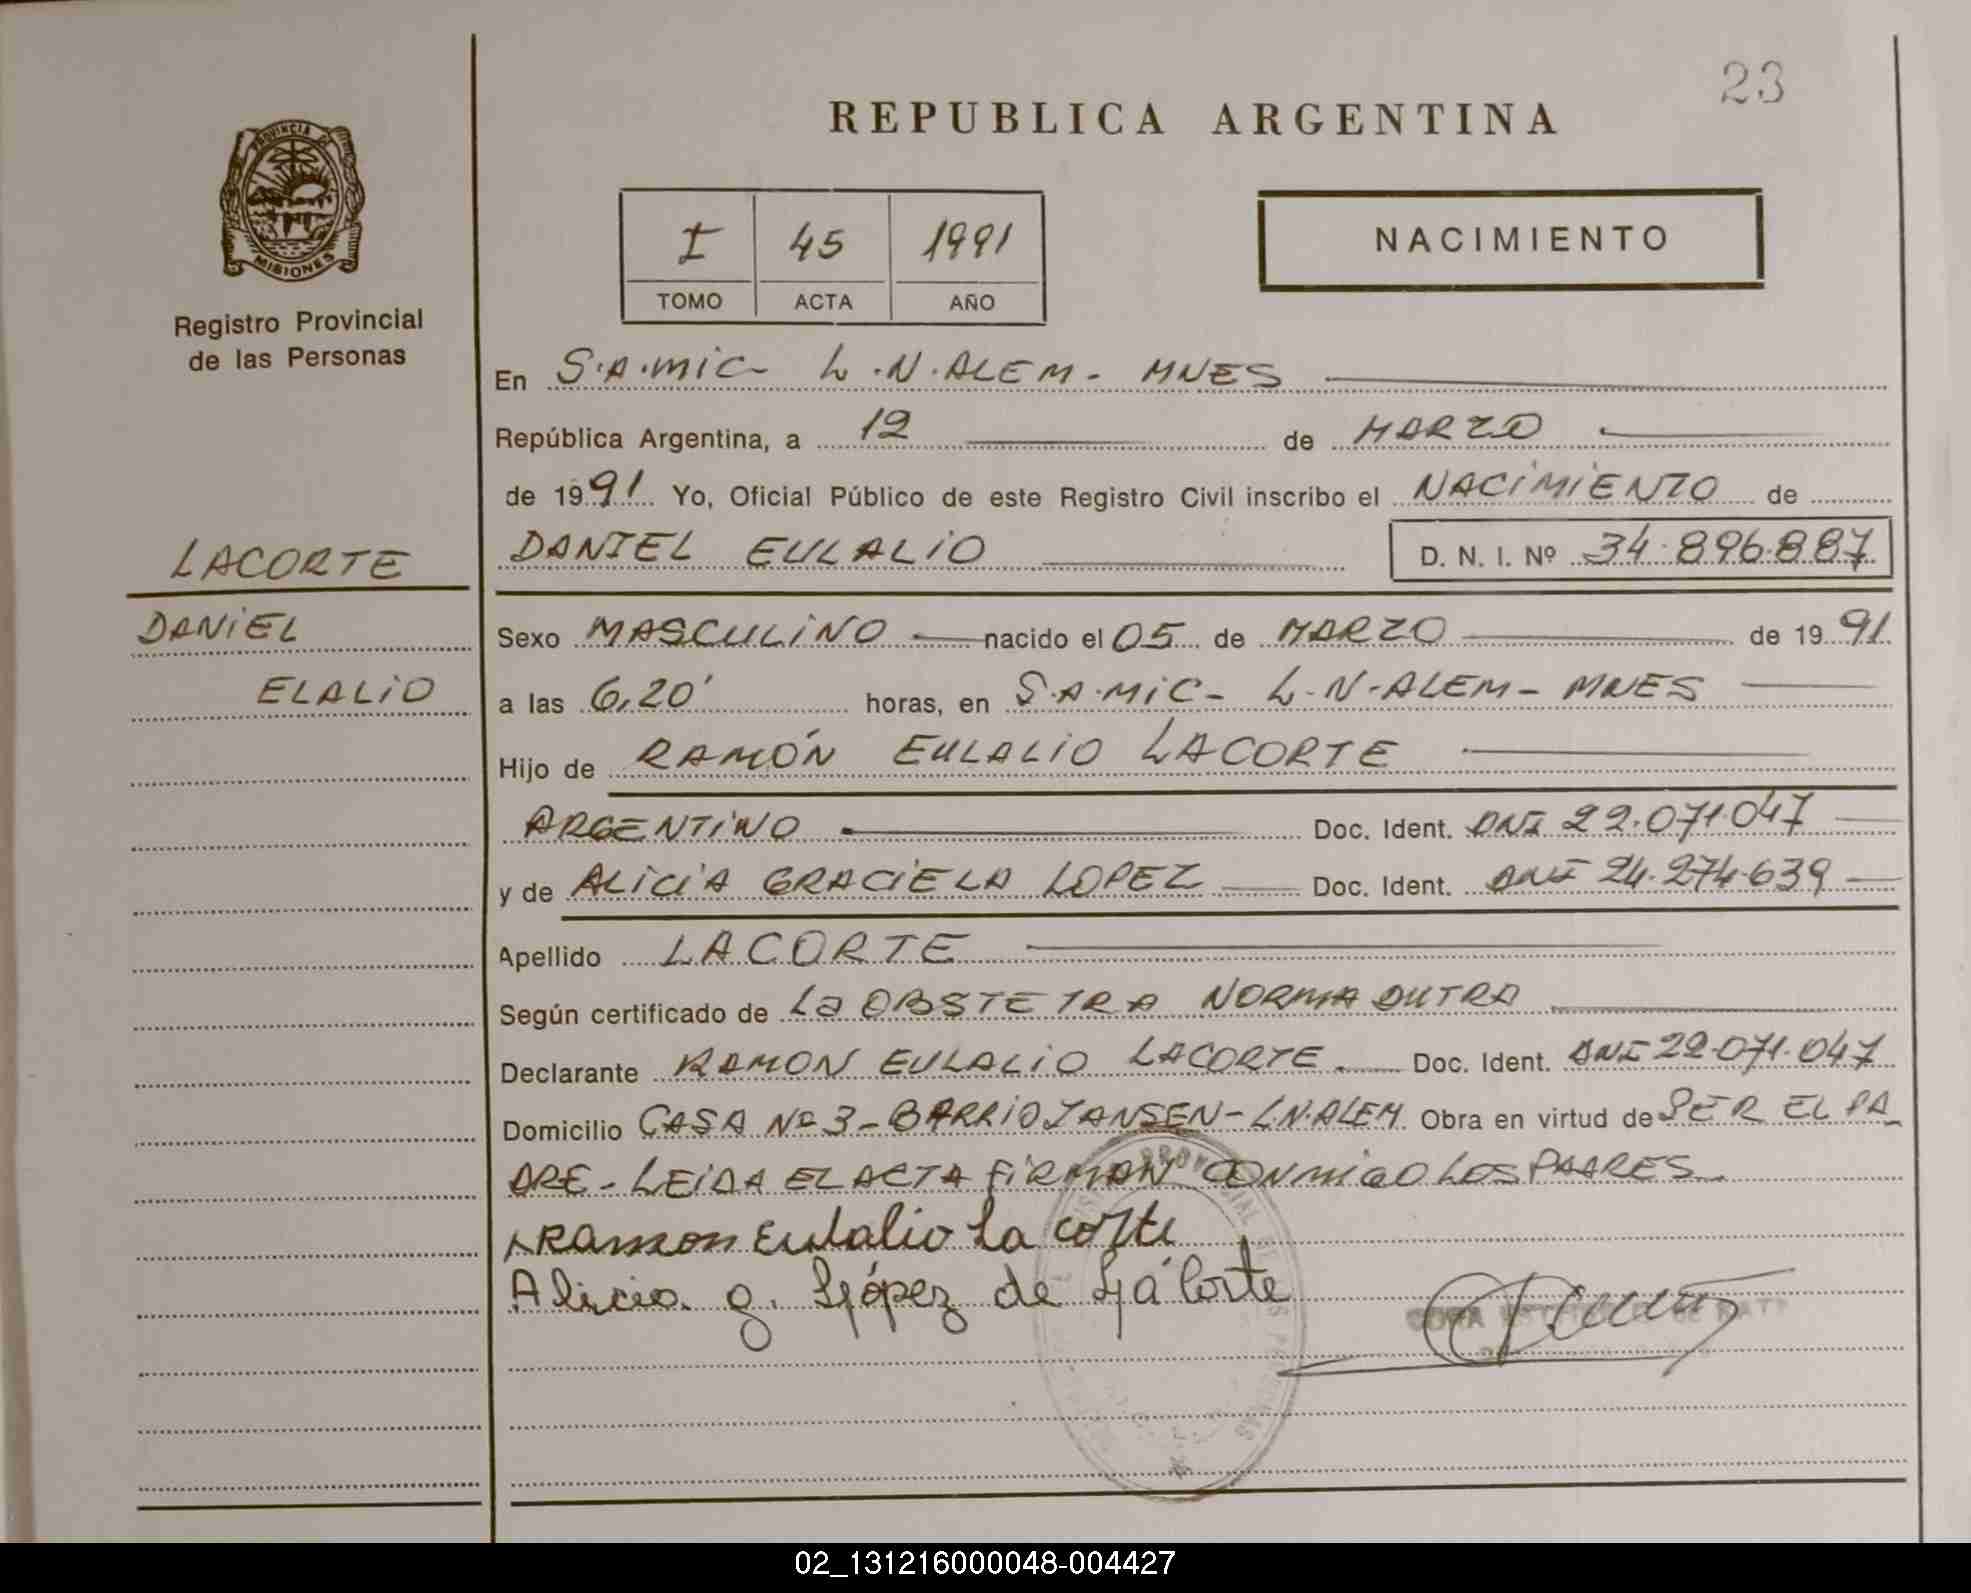 23
REPUBLICA ARGENTINA
PROVINCIA DE
MISIONES
Registro Provincial
de las Personas
I 45 1991
TOMO ACTA AÑO
NACIMIENTO
En S.A.MIC- L.N.ALEM- MNES
República Argentina, a 12 de MARZO
de 1991 Yo, Oficial Público de este Registro Civil inscribo el NACIMIENTO de
LACORTE
DANIEL EULALIO D. N. I. Nº 34.896.887
DANIEL
ELALIO
Sexo MASCULINO nacido el 05 de MARZO de 1991
a las 6,20' horas, en S.A.MIC- L.N.ALEM- MNES
Hijo de RAMÓN EULALIO LACORTE
ARGENTINO Doc. Ident. DNI 22.071.047
y de ALICIA GRACIELA LOPEZ Doc. Ident. DNI 24.274.639
Apellido LACORTE
Según certificado de La OBSTETRA NORMA DUTRA
Declarante RAMON EULALIO LACORTE Doc. Ident. DNI 22.071.047
Domicilio CASA Nº 3- BARRIO JANSEN- L.N.ALEM Obra en virtud de SER EL PA
DRE- LEIDA EL ACTA FIRMAN CONMIGO LOS PADRES
Ramon Eulalio La corte
Alicia g. López de La Corte
02_131216000048-004427